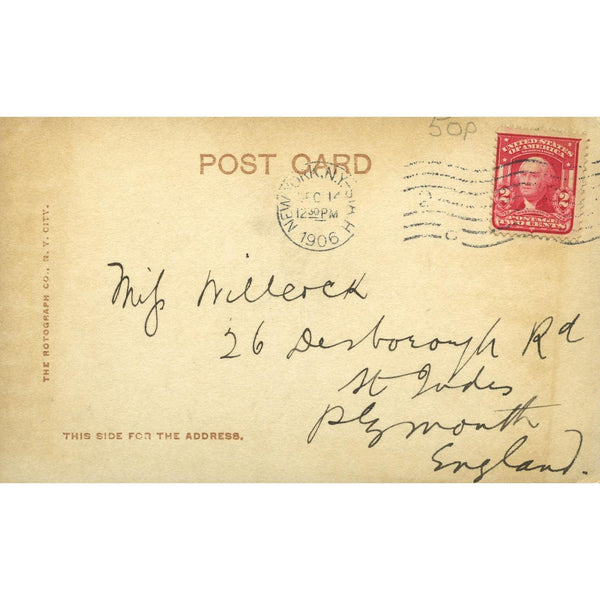 50p
POST CARD
UNITED STATES
OF AMERICA
2 2
POSTAGE
TWO CENTS
NEW YORK, N.Y.
DEC 14
12 30 PM
1906
Miss Willcock
26 Desborough Rd
St Judes
Plymouth
England.
THE ROTOGRAPH CO., N. Y. CITY.
THIS SIDE FOR THE ADDRESS.